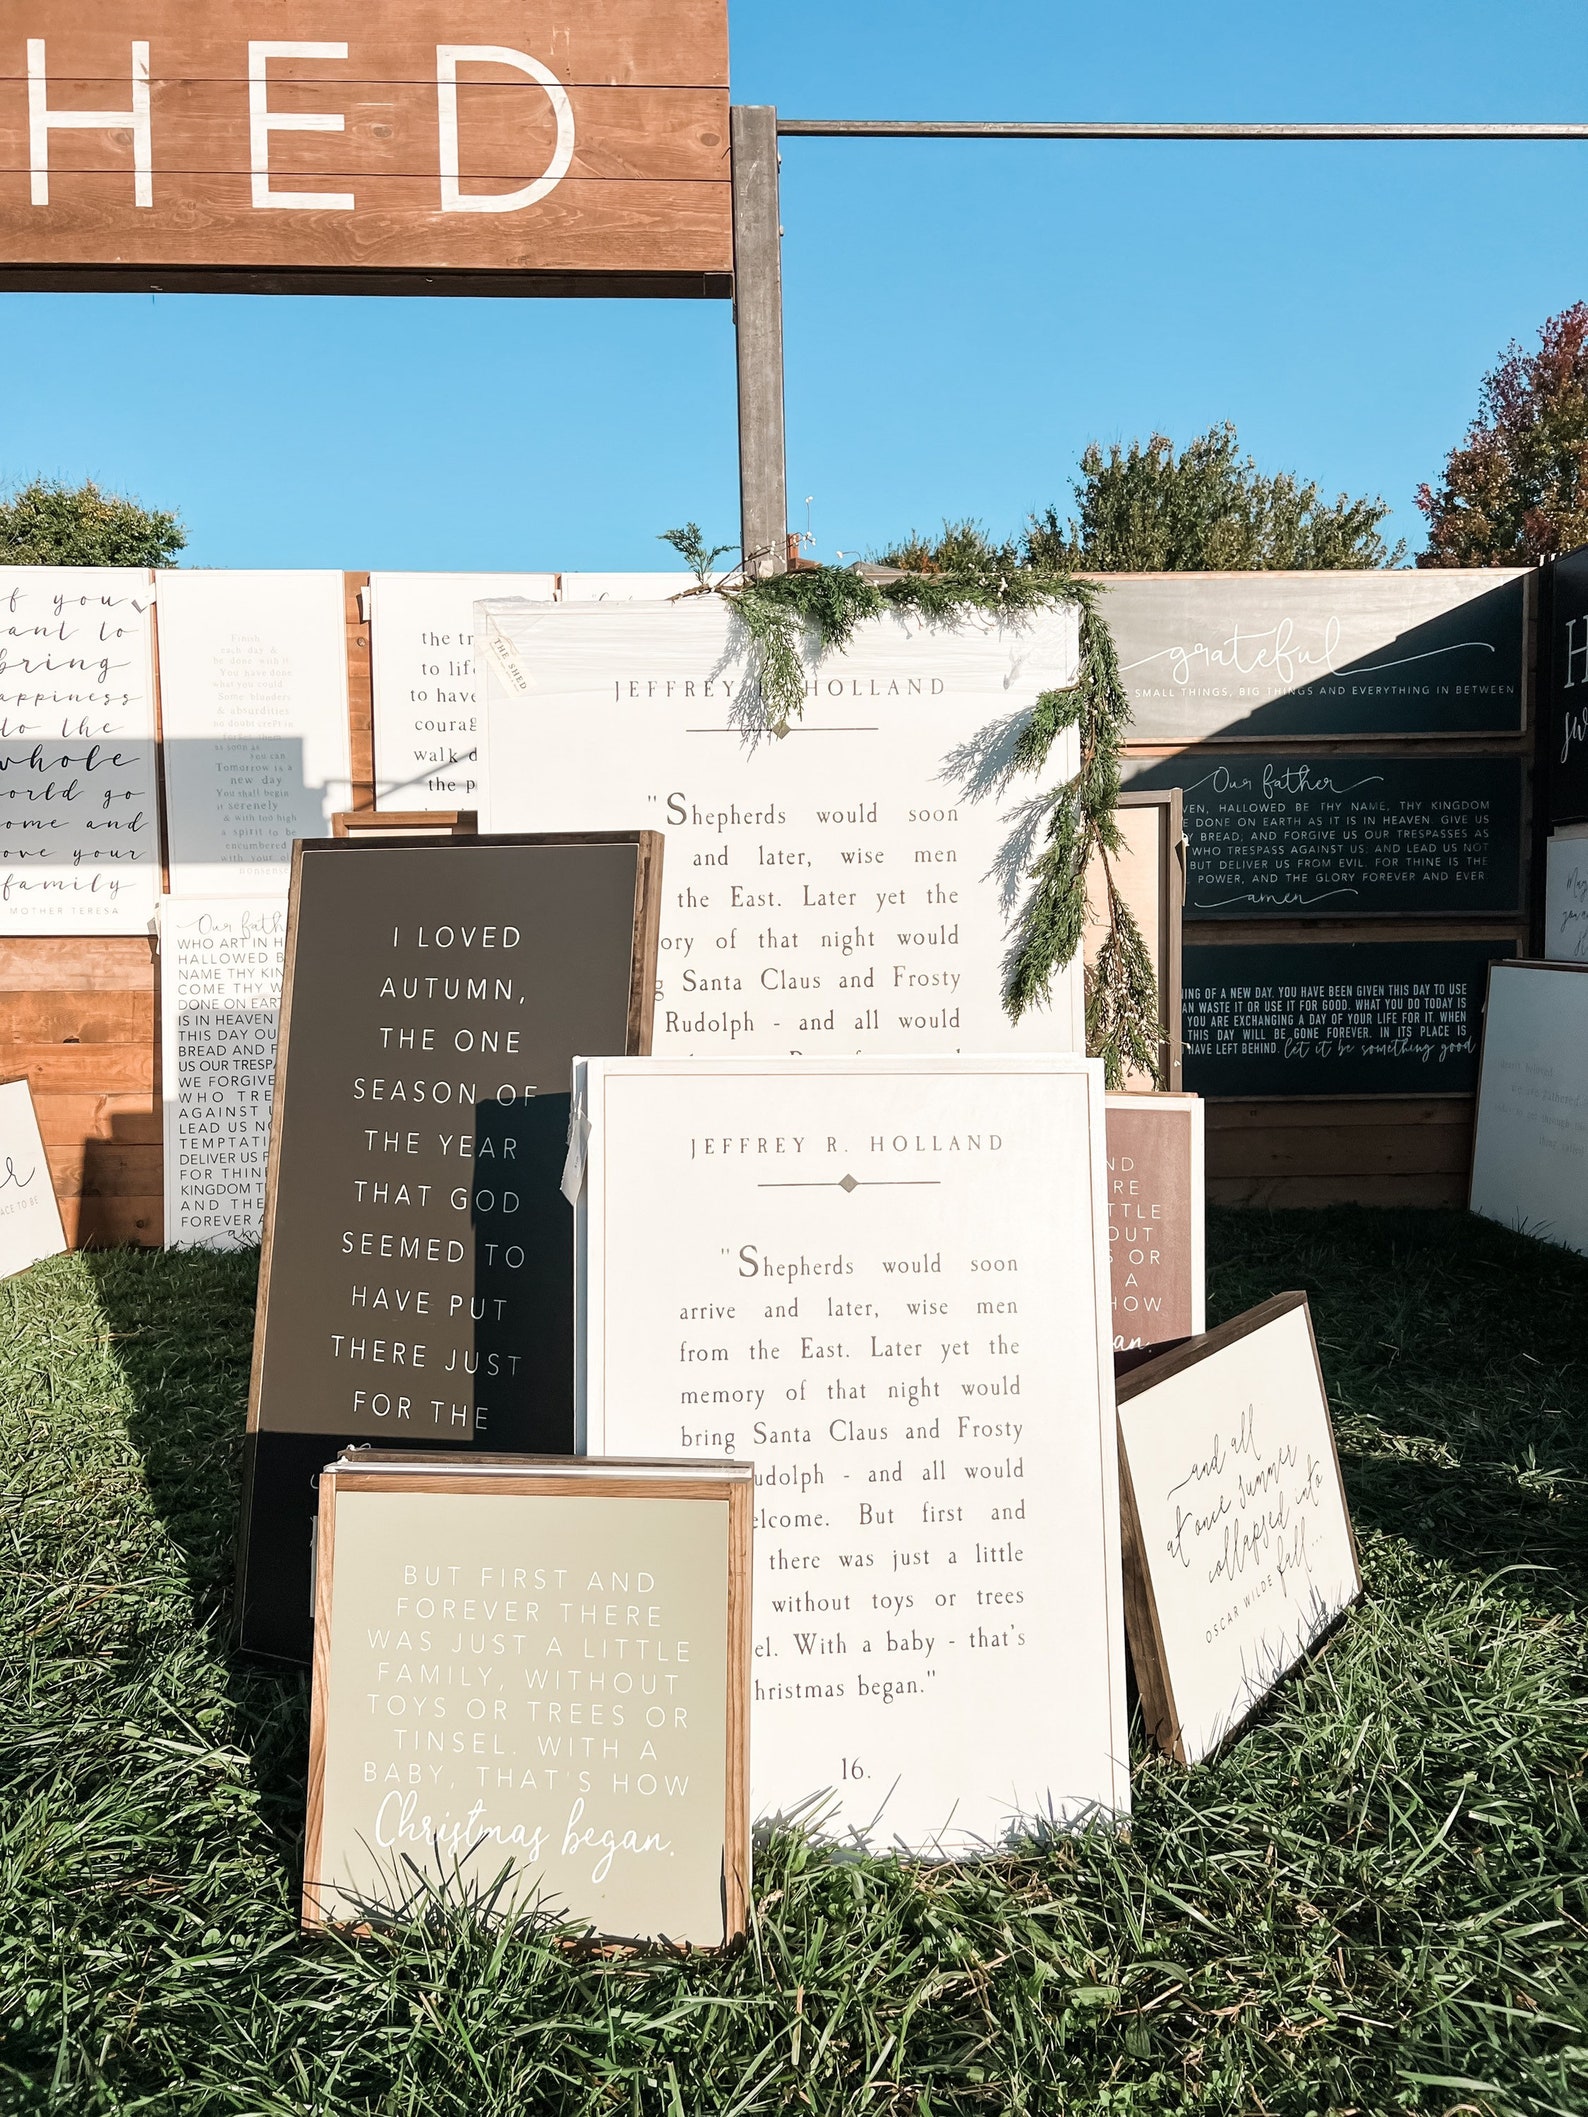 HED
f you
ant to
bring
appiness
to the
whole
orld go
ome and
ove your
family
MOTHER TERESA
Finish
each day &
be done with it.
You have done
what you could.
Some blunders
& absurdities
no doubt crept in
forget them
as soon as
you can
Tomorrow is a
new day
You shall begin
it serenely
& with too high
a spirit to be
encumbered
with your old
nonsense
the tr
to life
to have
courag
walk d
the p
THE SHED
JEFFREY HOLLAND
"Shepherds would soon
and later, wise men
the East. Later yet the
ory of that night would
g Santa Claus and Frosty
Rudolph - and all would
grateful
SMALL THINGS, BIG THINGS AND EVERYTHING IN BETWEEN
Our father
VEN, HALLOWED BE THY NAME, THY KINGDOM
DONE ON EARTH AS IT IS IN HEAVEN. GIVE US
Y BREAD; AND FORGIVE US OUR TRESPASSES AS
WHO TRESPASS AGAINST US: AND LEAD US NOT
BUT DELIVER US FROM EVIL. FOR THINE IS THE
POWER, AND THE GLORY FOREVER AND EVER
amen
NG OF A NEW DAY. YOU HAVE BEEN GIVEN THIS DAY TO USE
AN WASTE IT OR USE IT FOR GOOD. WHAT YOU DO TODAY IS
YOU ARE EXCHANGING A DAY OF YOUR LIFE FOR IT. WHEN
THIS DAY WILL BE GONE FOREVER. IN ITS PLACE IS
HAVE LEFT BEHIND. let it be something good
Our fath
WHO ART IN H
HALLOWED B
NAME THY KIN
COME THY W
DONE ON EART
IS IN HEAVEN
THIS DAY OU
BREAD AND F
US OUR TRESPA
WE FORGIVE
WHO TRE
AGAINST U
LEAD US NO
TEMPTATI
DELIVER US F
FOR THINE
KINGDOM T
AND THE
FOREVER A
am
ACE TO BE
I LOVED
AUTUMN,
THE ONE
SEASON OF
THE YEAR
THAT GOD
SEEMED TO
HAVE PUT
THERE JUST
FOR THE
JEFFREY R. HOLLAND
"Shepherds would soon
arrive and later, wise men
from the East. Later yet the
memory of that night would
bring Santa Claus and Frosty
udolph - and all would
elcome. But first and
there was just a little
without toys or trees
el. With a baby - that's
hristmas began."
16.
ND
RE
TTLE
OUT
S OR
A
HOW
an.
and all
at once summer
collapsed into
fall...
OSCAR WILDE
BUT FIRST AND
FOREVER THERE
WAS JUST A LITTLE
FAMILY, WITHOUT
TOYS OR TREES OR
TINSEL. WITH A
BABY, THAT'S HOW
Christmas began.